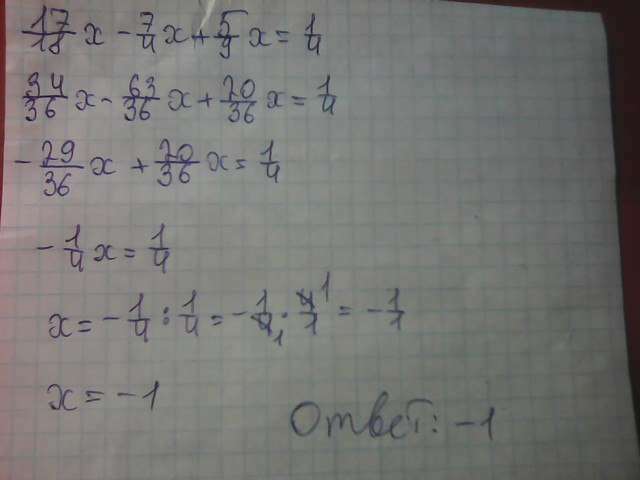 17/18 x - 7/4 x + 5/9 x = 1/4
34/36 x - 63/36 x + 20/36 x = 1/4
- 29/36 x + 20/36 x = 1/4
- 1/4 x = 1/4
x = - 1/4 : 1/4 = - 1/4 1 · 4/1 1 = - 1/1
x = - 1
Ответ: -1